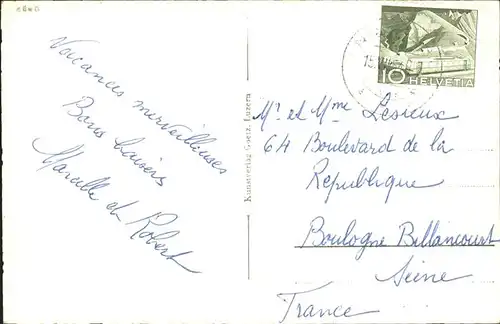 Vacances merveilleuses
Bons baisers
Marcelle et Robert
Kunstverlag Goetz, Luzern
10
HELVETIA
Mr et Mme Lesieux
64 Boulevard de la
Republique
Boulogne Billancourt
Seine
France